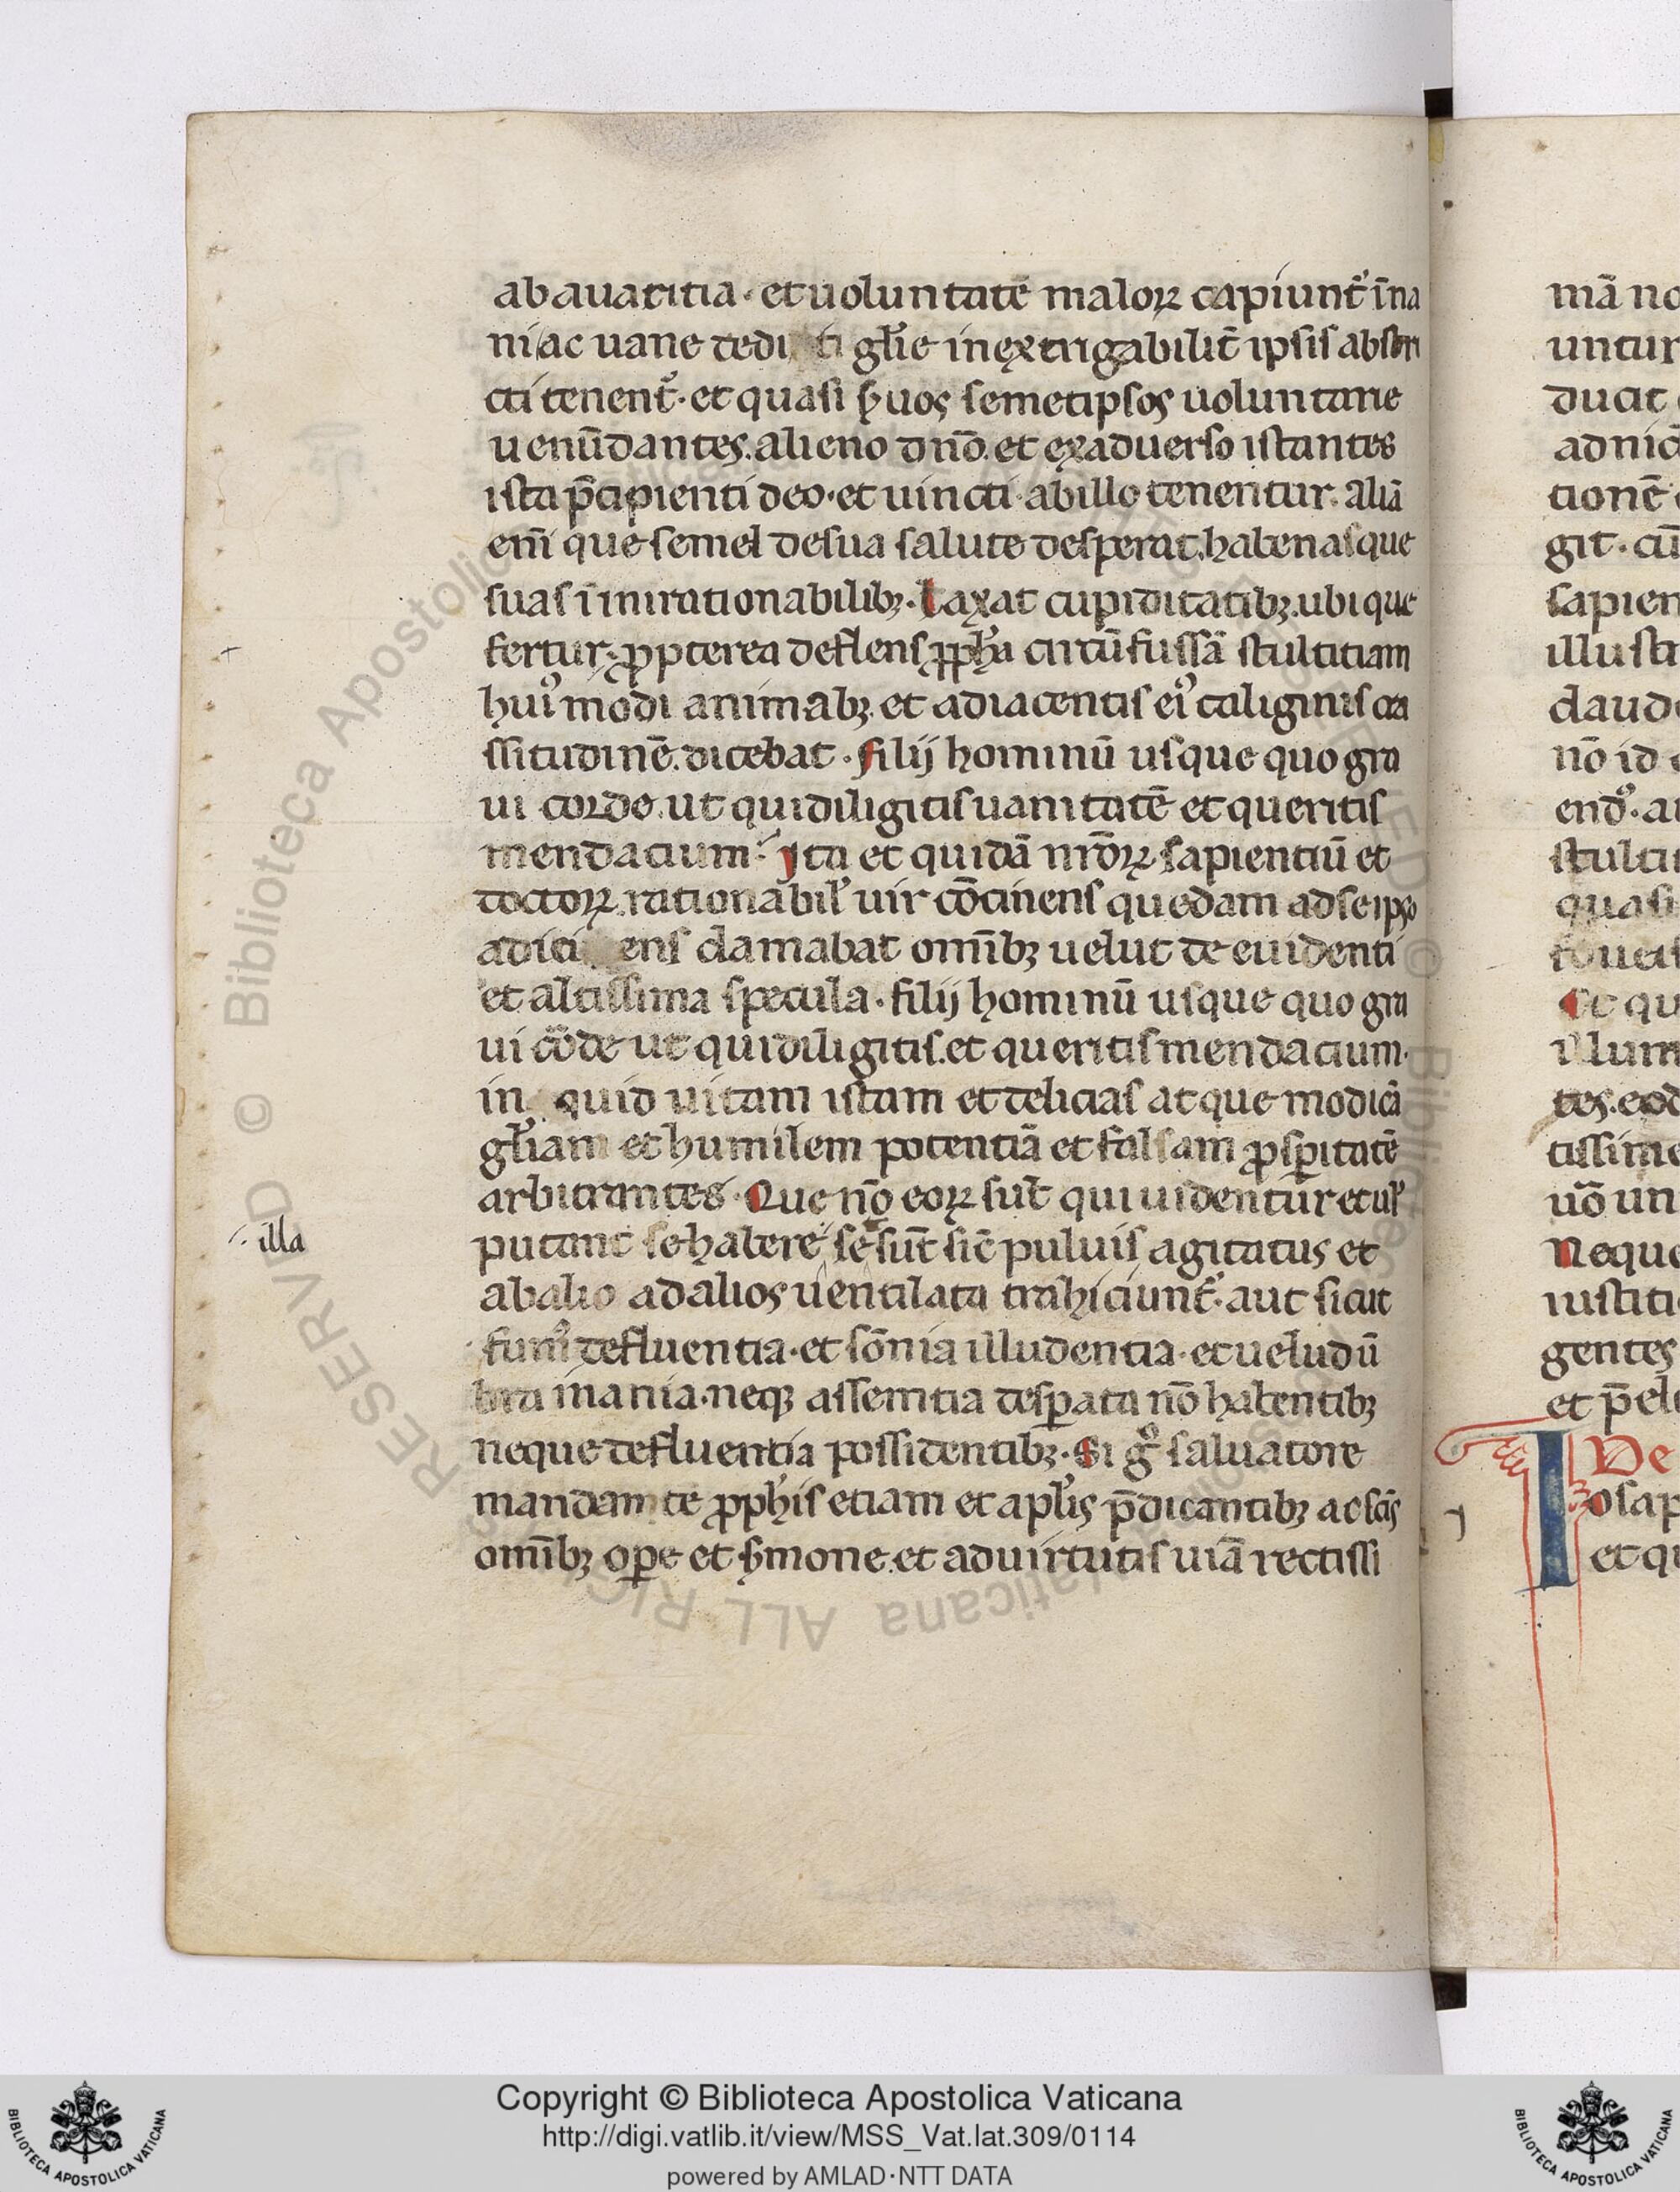 ab auaritia · et uoluntatē maloꝝ capiunt᷑ īna
ni ac uane dedi ti gl̄ie inextrigabilit̄ ipsis abstri
cti tenent᷑ · et quasi s̄uos semetipsos uoluntarie
uenūdantes. alieno dn̄o. et exaduerso istantes
ista p̄cipienti deo · et uincti · ab illo tenentur. aliā
eni̅ que semel de sua salute desperat, habenasque
suas ī inirationabilibꝫ · Laxat cupiditatibꝫ. ubique
fertur. ꝓpterea deflens ꝓph̄a circūfussā stultitiam
huiꝰmodi animabꝫ. et adiacentis eiꝰ caliginis cra
ssitudinē. dicebat · Filij hominū usque quo gra
ui corde. ut quid diligitis uanitatē et queritis
mendacium · Ita et quidā nr̄oꝝ sapientiū et
doctoꝝ. rationabil᷑ uir cōcinens quedam ad se ipso
adici ens clamabat omībꝫ uelut de euidenti
et altissima specula · filij hominū usque quo gra
ui cōde ut quid diligitis. et queritis mendacium ·
in quid uitam istam et delicias atque modicā
gl̄iam et humilem potentiā et falsam ꝓsꝑitatē
arbitrantes · Que nō eoꝝ sūt qui uidentur et ul᷑
illa
putant se habere se sūt sic̄ puluis agitatus et
ab alio ad alios uentilata trahiciunt᷑ · aut sicut
fumꝰ defluentia · et sōnia illudentia · et uelud ū
bra inania · neqꝫ assentia desꝑata nō habentibꝫ
neque defluentia possidentibꝫ · Si gͦ saluatore
mandan te ꝓph̄is etiam et apl̄is p̄dicantibꝫ ac sc̄is
omībꝫ oꝑe et s̄mone. et ad uirtutis uiā rectissi
mā no
untur
ducit
ad nic
tionē
git · cū
sapien
illustr
claud
nō id
endꝰ · a
stulti
quasi
Et qu
illum
tes. eod
tissime
uō un
Neque
iustiti
gentes
et p̄el
De
Iosap
et qu
© Biblioteca Apostolica Vaticana ALL RIGHTS RESERVED
Copyright © Biblioteca Apostolica Vaticana
http://digi.vatlib.it/view/MSS_Vat.lat.309/0114
powered by AMLAD·NTT DATA
BIBLIOTECA APOSTOLICA VATICANA
BIBLIOTECA APOSTOLICA VATICANA